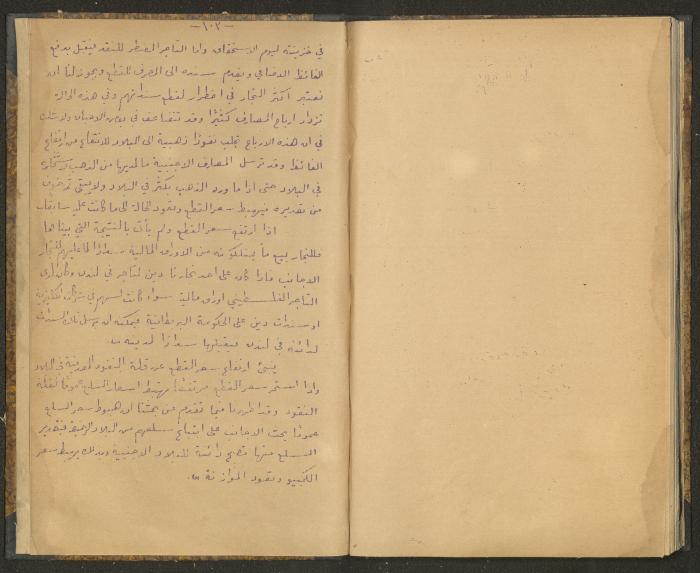 -١٠٢-
في خزينته ليوم الاستحقاق واما التاجر المضطر للنقد فيقبل بدفع
الفائظ الاضافي ويقدم سنده الى المصرف للقطع ويجوز لنا ان
نعتبر اكثر التجار في اضطرار لقطع سنداتهم وفي هذه الحالة
تزداد ارباح المصارف كثيرًا وقد تتضاعف في بعض الاحيان ولا شك
في ان هذه الارباح تجلب نقودًا ذهبية الى البلاد للانتفاع من ارتفاع
الفائظ وقد ترسل المصارف الاجنبية ما لديها من الذهب
في البلاد حتى اذا ما ورد الذهب بكثرة في البلاد ولا يبقى
من تصديره فيهبط سعر القطع وتعود الحالة الى ما كانت عليه سابقا
اذا ارتفع سعر القطع ولم يأت بالنتيجة التي بيناها
فللتجار بيع ما يمتلكونه من الاوراق المالية سدادًا لما عليهم للتجار
الاجانب فاذا كان على احد تجارنا دين لتاجر في لندن وكان لدى
التاجر الفلسطيني اوراق مالية سواء كانت اسهم في شركات انكليزية
او سندات دين على الحكومة البريطانية فيمكنه ان يرسل تلك السندات
لدائنه في لندن فيقبلها سدادًا لدينه
ينشئ ارتفاع سعر القطع عن قلة النقود المعدنية في البلاد
واذا استمر سعر القطع مرتفعًا تهبط اسعار السلع عمومًا لقلة
النقود وقد اظهرنا فيما تقدم من بحثنا ان هبوط سعر السلع
عمومًا يحث الاجانب على ابتياع سلعهم من البلاد الرخيصة فبتصدير
السلع منها تصبح دائنة للبلاد الاجنبية وبذلك يهبط سعر
الكمبيو وتعود الموازنة